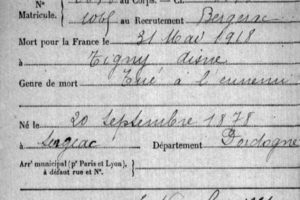 Nº
au Corps. — Cl.
Matricule. 1065 au Recrutement Bergerac
Mort pour la France le 31 Mai 1918
à Tigny Aisne
Genre de mort Tué à l'ennemi
Né le 20 Septembre 1878
à Sergeac Département Dordogne
Arrᵗ municipal (pʳ Paris et Lyon),
à défaut rue et Nº.